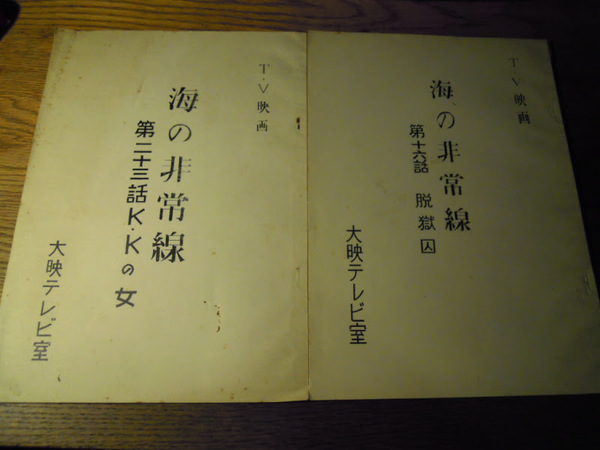 T.V映画
海の非常線
第十六話 脱獄囚
大映テレビ室
T.V映画
海の非常線
第二十三話 K.Kの女
大映テレビ室